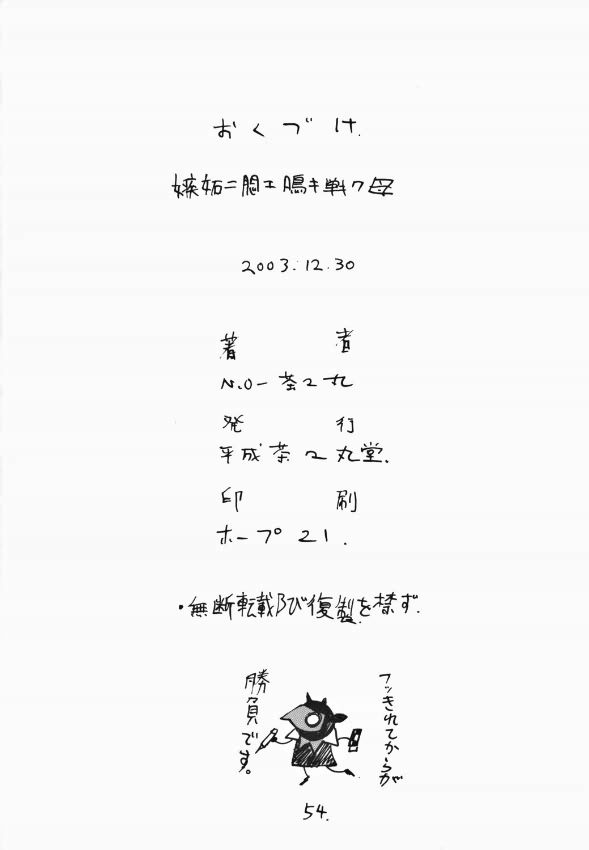 おくづけ.
嫉妬ニ悶エ鳴キ戦ク母
2003.12.30
著者
N.O-茶2丸
発行
平成茶2丸堂.
印刷
ホープ21.
・無断転載及び復製を禁ず.
フッきれてからが
勝負です。
54.